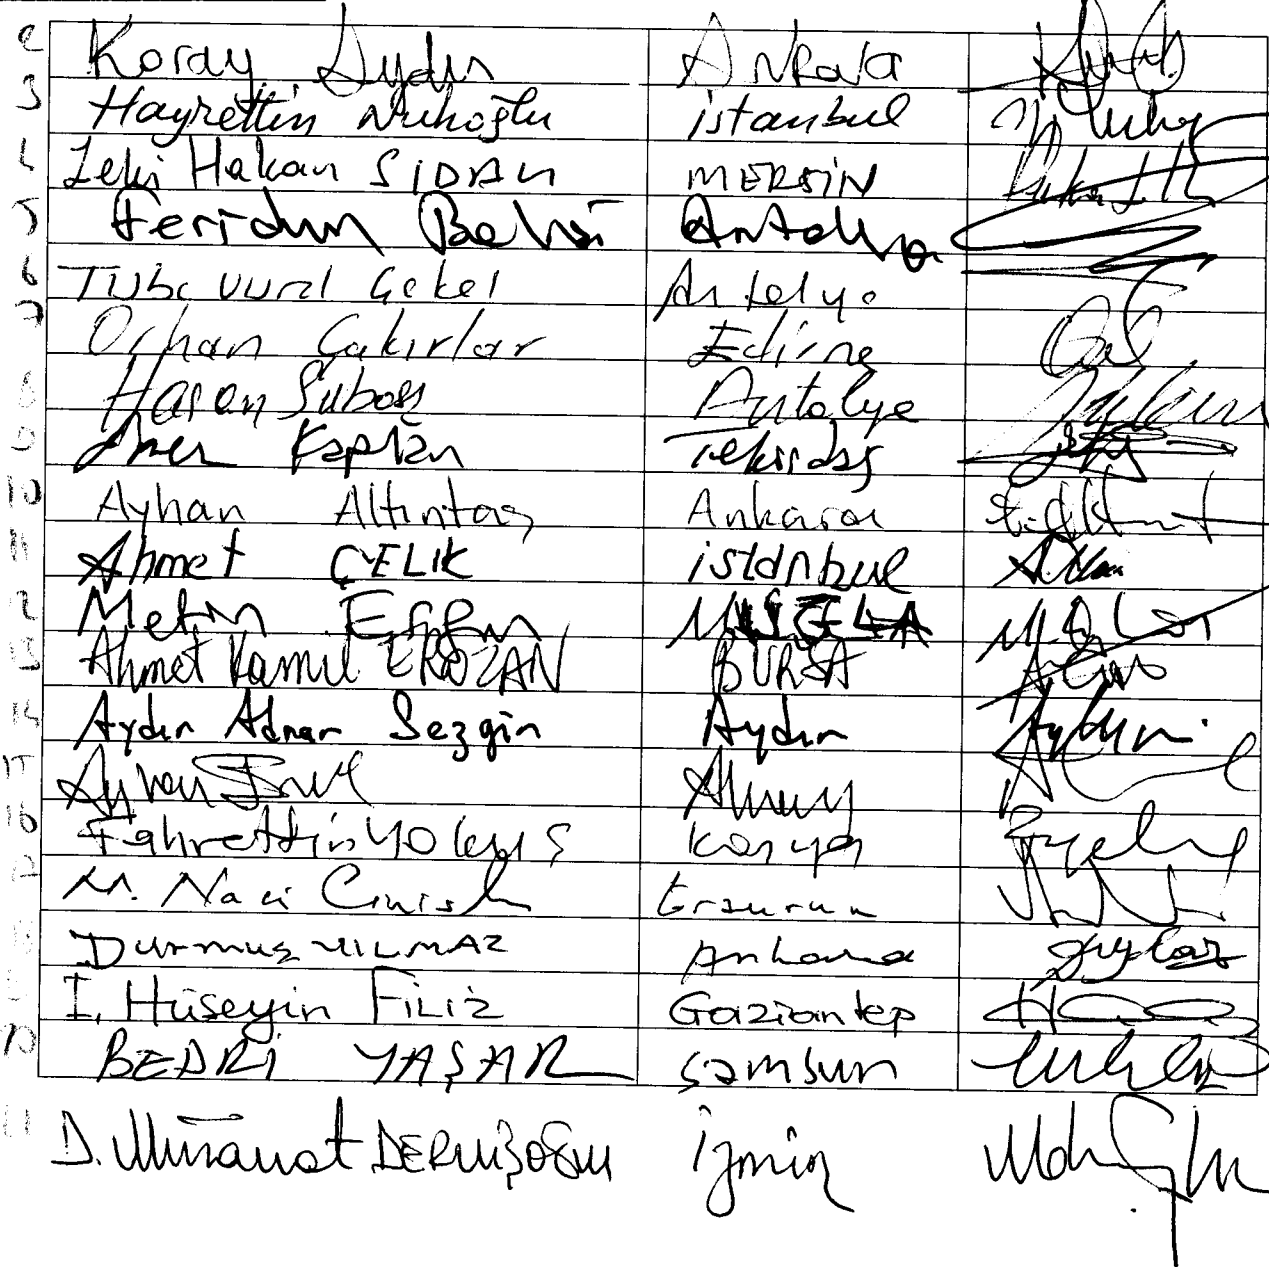 2 Koray Aydın Ankara
3 Hayrettin Nuhoğlu istanbul
4 Zeki Hakan SIDALI MERSİN
5 Feridun Bahşi Antalya
6 Tuba vural Çokal Antalya
7 Orhan Çakırlar Edirne
8 Hasan Subaşı Antalya
9 Enez Kaplan Tekirdağ
10 Ayhan Altıntaş Ankara
11 Ahmet ÇELİK istanbul
12 Metin Ergun MUĞLA
13 Ahmet Kamil EROZAN BURSA
14 Aydın Adnan Sezgin Aydın
15 Ayhan Erel Aksaray
16 Fahrettin Yokuş Konya
17 M. Naci Cinisli Erzurum
Durmuş YILMAZ Ankara
I. Hüseyin FİLİZ Gaziantep
20 BEDRİ YAŞAR Samsun
D. Müsavat DERVİŞOĞLU izmir